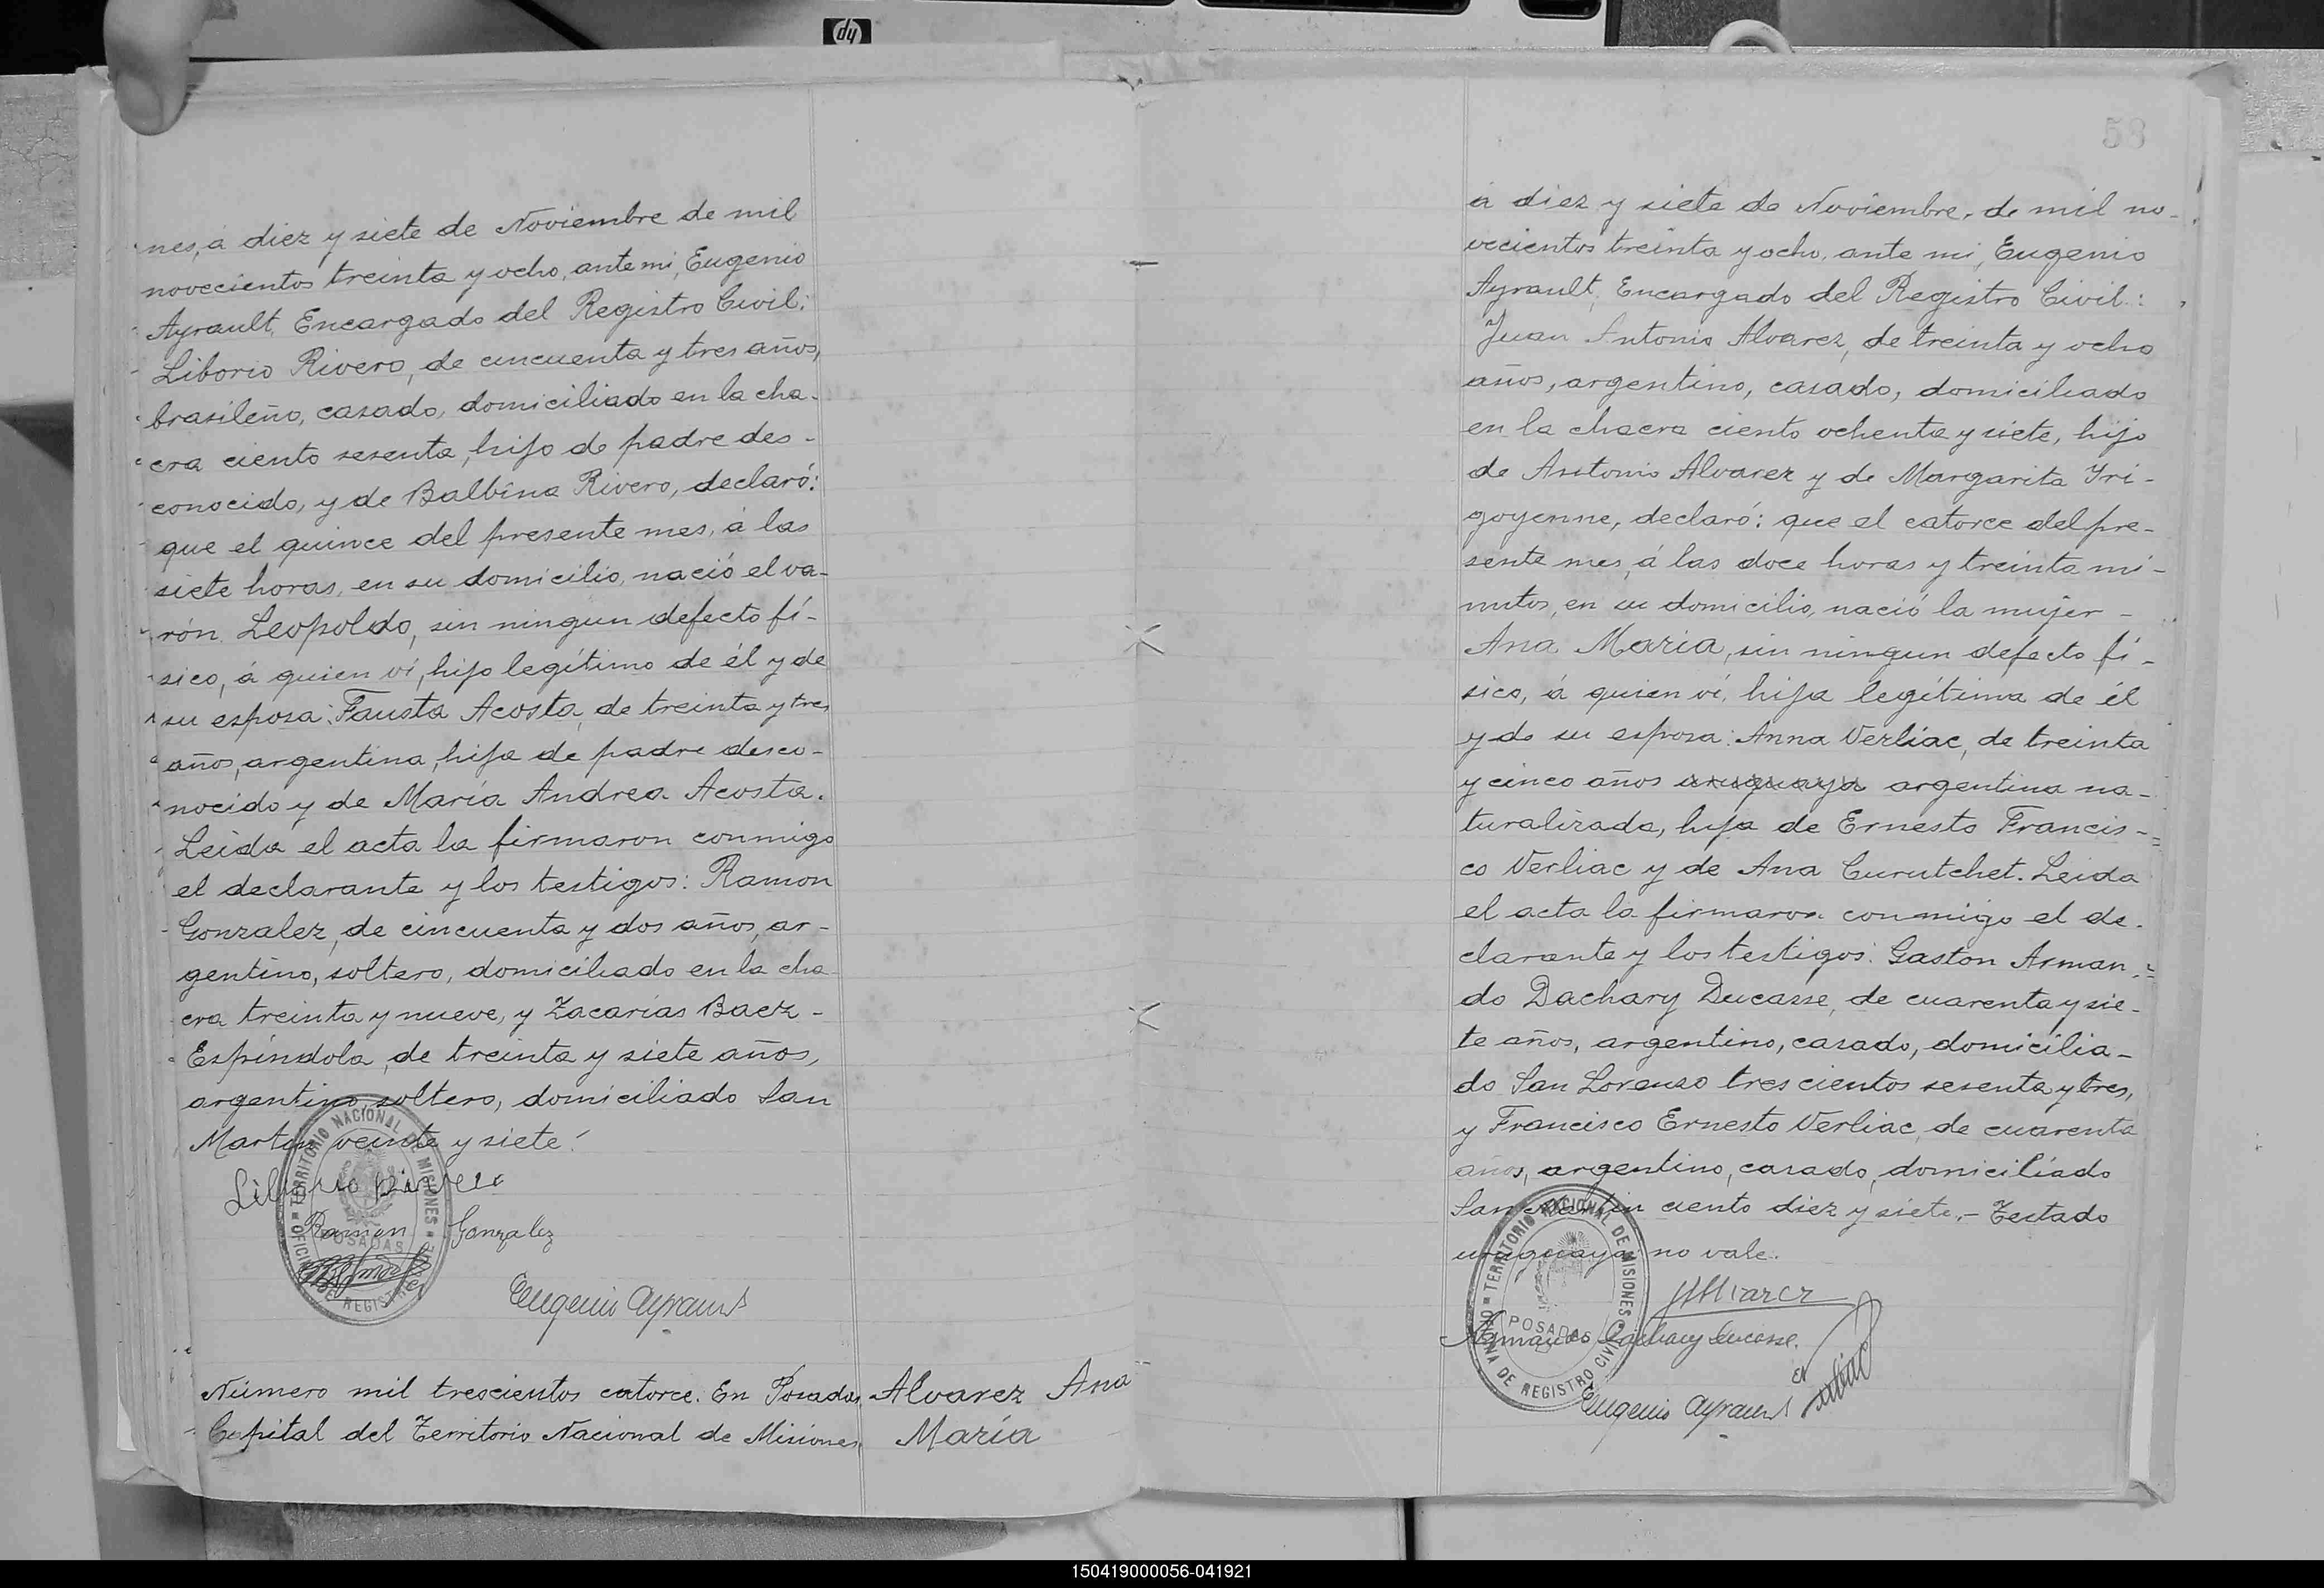 hp
nes, á diez y siete de Noviembre de mil
novecientos treinta y ocho, ante mi, Eugenio
Ayrault, Encargado del Registro Civil:
Liborio Rivero, de cincuenta y tres años,
brasileño, casado, domiciliado en la cha-
cra ciento sesenta, hijo de padre des-
conocido, y de Balbina Rivero, declaró:
que el quince del presente mes, á las
siete horas, en su domicilio, nació el va-
rón Leopoldo, sin ningun defecto fí-
sico, á quien ví, hijo legítimo de él y de
su esposa: Fausta Acosta, de treinta y tres
años, argentina, hija de padre desco-
nocido y de María Andrea Acosta.
Leida el acta la firmaron conmigo
el declarante y los testigos: Ramon
Gonzalez, de cincuenta y dos años, ar-
gentino, soltero, domiciliado en la cha
cra treinta y nueve, y Zacarías Baez -
Espíndola, de treinta y siete años,
argentino, soltero, domiciliado San
Martin veinte y siete.
Liborio Rivero
Ramón Gonzalez
TERRITORIO NACIONAL DE MISIONES
POSADAS
OFICINA DE REGISTRO CIVIL
Eugenio Ayrault
Número mil trescientos catorce. En Posadas,
Capital del Territorio Nacional de Misiones,
Alvarez Ana
María
58
á diez y siete de Noviembre, de mil no-
vecientos treinta y ocho, ante mi, Eugenio
Ayrault, Encargado del Registro Civil:
Juan Antonio Alvarez, de treinta y ocho
años, argentino, casado, domiciliado
en la chacra ciento ochenta y siete, hijo
de Antonio Alvarez y de Margarita Yri-
goyenne, declaró: que el catorce del pre-
sente mes, á las doce horas y treinta mi-
nutos, en su domicilio, nació la mujer -
Ana María, sin ningun defecto fí-
sico, á quien ví, hija legítima de él
y de su esposa: Anna Verliac, de treinta
y cinco años uruguaya argentina na-
turalizada, hija de Ernesto Francis-
co Verliac y de Ana Curutchet. Leida
el acta la firmaron conmigo el de-
clarante y los testigos: Gaston Arman-
do Dachary Ducasse, de cuarenta y sie-
te años, argentino, casado, domicilia-
do San Lorenzo trescientos sesenta y tres,
y Francisco Ernesto Verliac, de cuarenta
años, argentino, casado, domiciliado
San Martin ciento diez y siete.- Testado
uruguaya: no vale.
JAlvarez
Armando Dachary Ducasse.
TERRITORIO NACIONAL DE MISIONES
POSADAS
OFICINA DE REGISTRO CIVIL
Verliac
Eugenio Ayrault
150419000056-041921